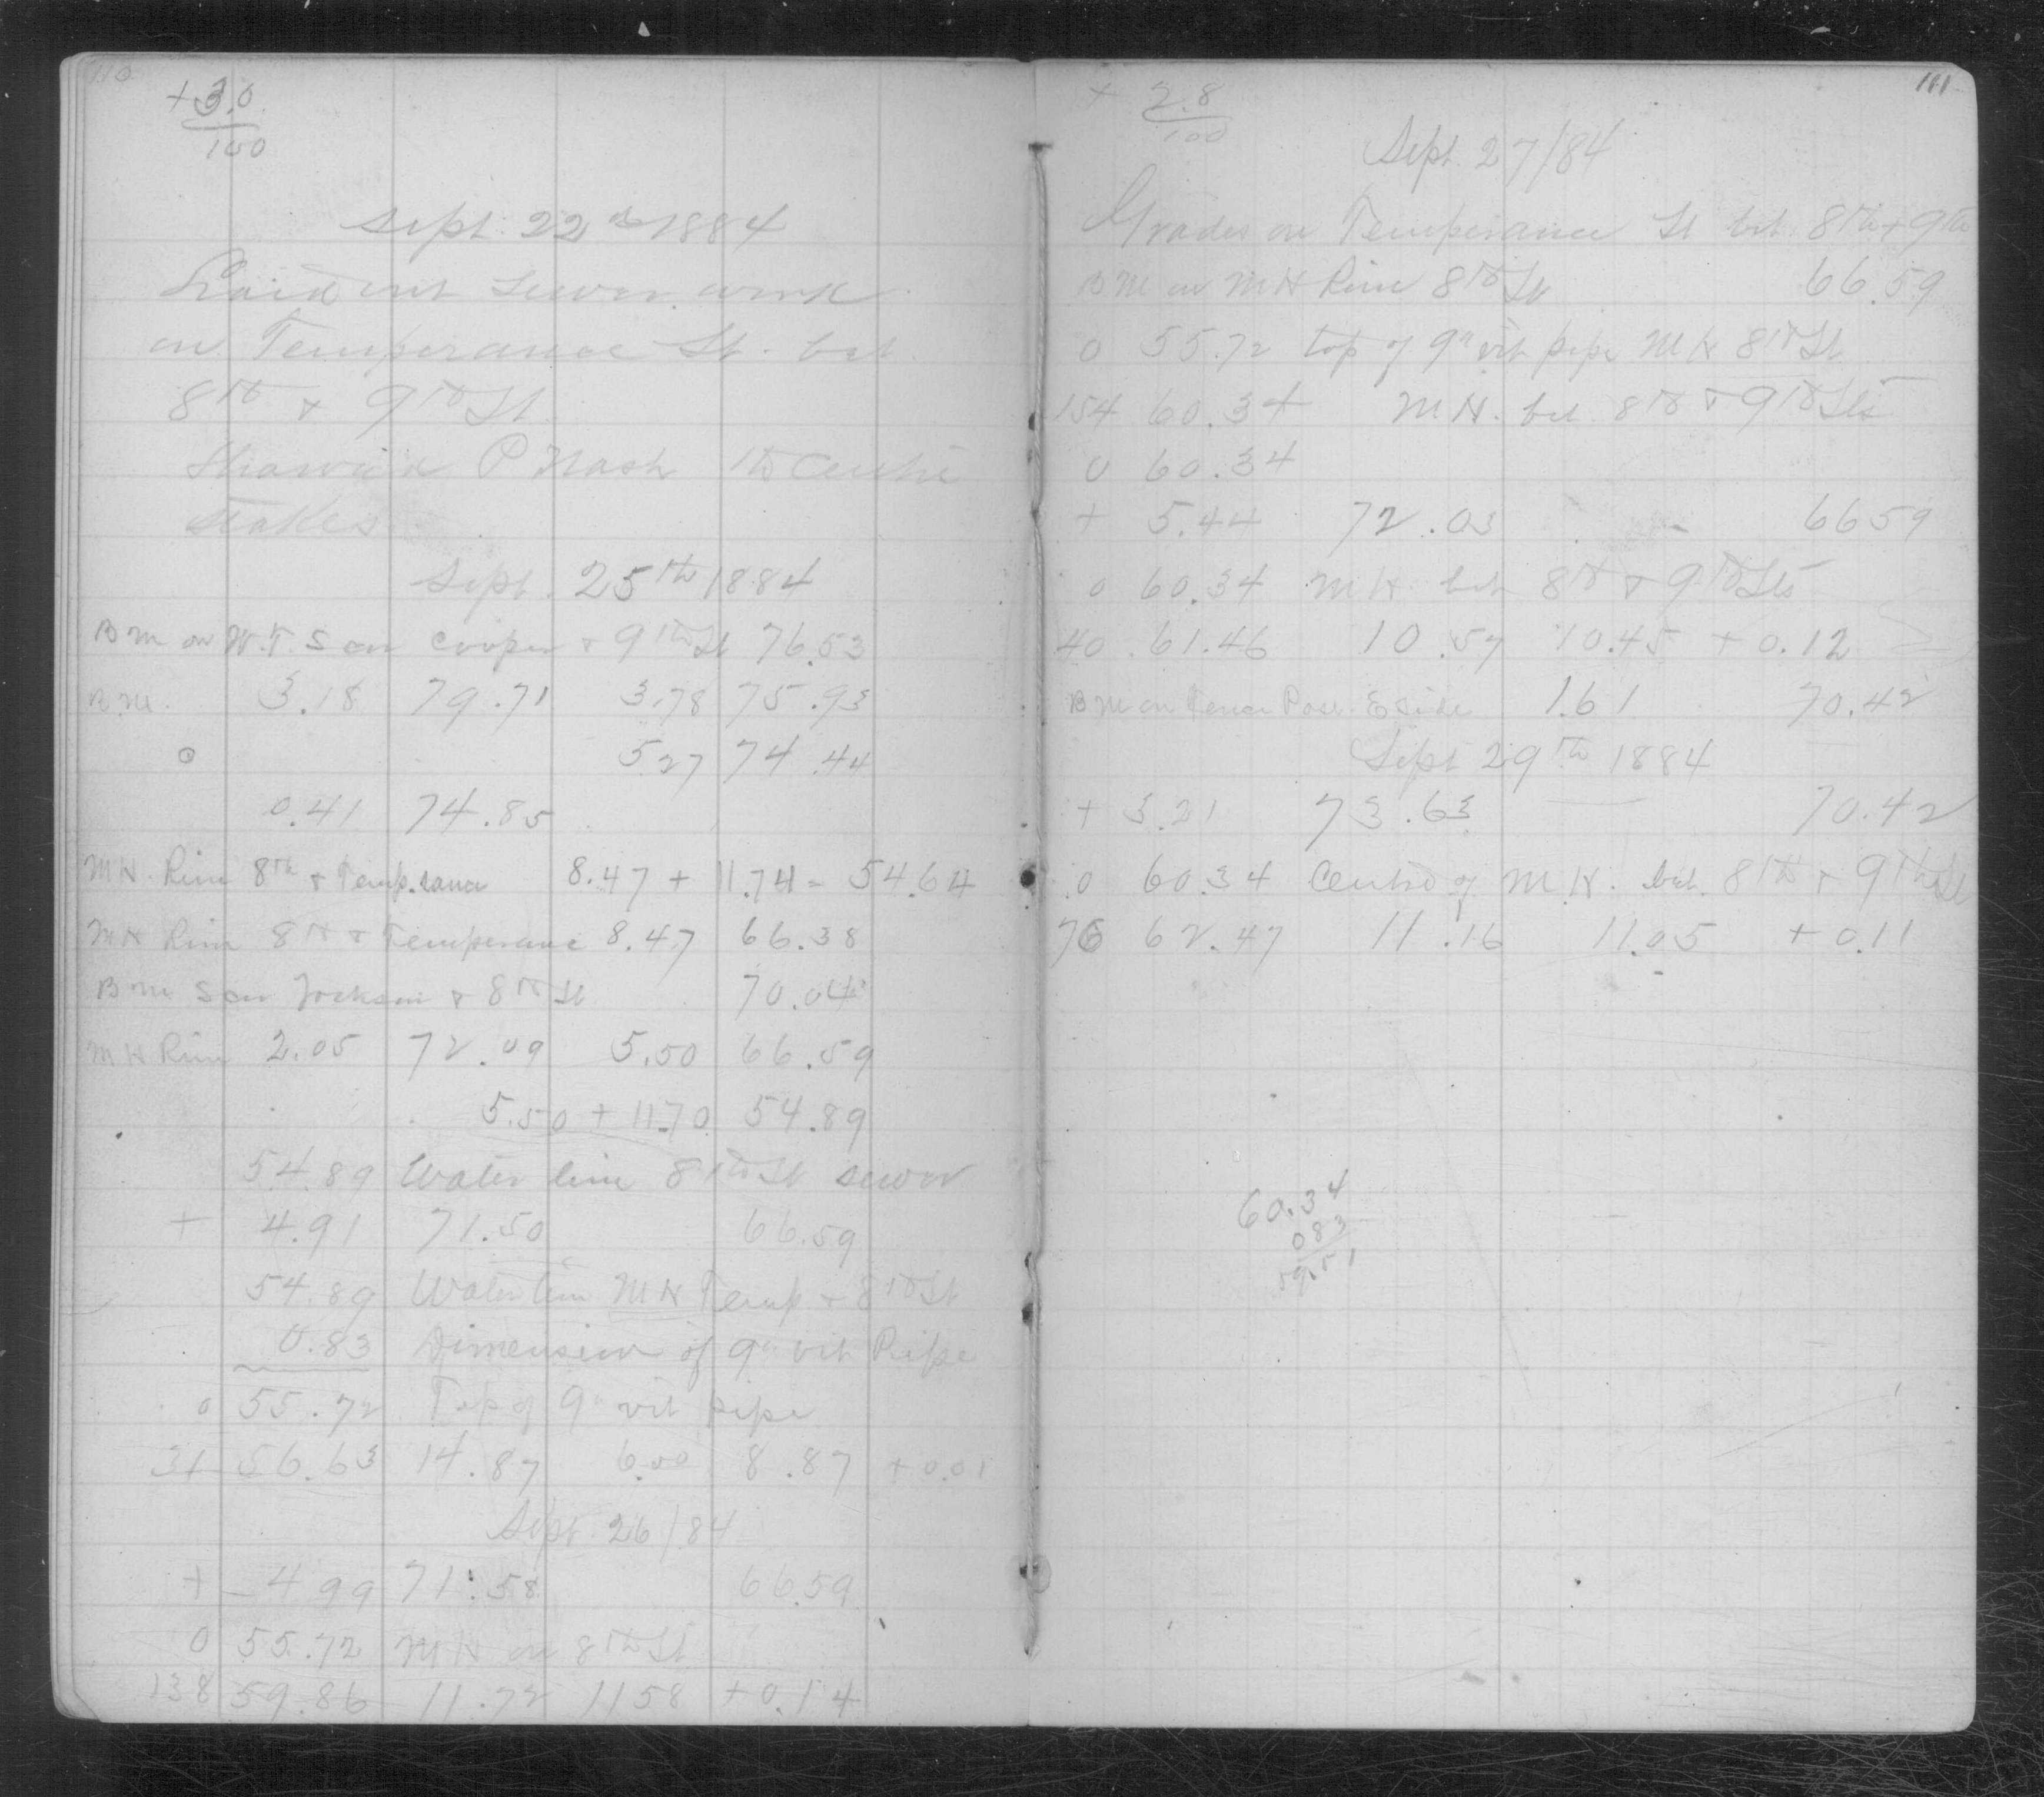 110
+ 3.0
100
Sept. 22nd 1884
Laid out sewer work
on Temperance St. bet.
8th & 9th St.
P Nash the Centre
stakes
Sept. 25th 1884
BM on W.T. S cor Cooper & 9th St 76.53
B.M. 3.18 79.71 3.78 75.93
0 5.27 74.44
0.41 74.85
MH Rim 8th & Temperance 8.47 + 11.74 = 54.64
MH Rim 8th & Temperance 8.47 66.38
BM S cor Jackson & 8th St 70.04
MH Rim 2.05 72.09 5.50 66.59
5.50 + 11.70 54.89
54.89 Water line 8th St sewer
+ 4.91 71.50 66.59
54.89 Water line MH Temp & 8th St
0.83 Dimension of 9" vit Pipe
0 55.72 Top of 9" vit pipe
31 56.63 14.87 6.00 8.87 + 0.01
Sept. 26/84
+ 4.99 71.58 66.59
0 55.72 MH on 8th St
138 59.86 11.72 11.58 + 0.14
111
+ 2.8
100
Sept. 27/84
Grades on Temperance St bet. 8th & 9th
BM on MH Rim 8th St 66.59
0 55.72 top of 9" vit pipe MH 8th St
154 60.34 MH. bet 8th & 9th Sts
0 60.34
+ 5.44 72.03 6659
0 60.34 MH bet 8th & 9th Sts
40 61.46 10.57 10.45 + 0.12
BM on Fence Post E side 1.61 70.42
Sept 29th 1884
+ 3.21 73.63 70.42
0 60.34 Centre of MH. bet. 8th & 9th St
76 62.47 11.16 11.05 + 0.11
60.34
083
59.51